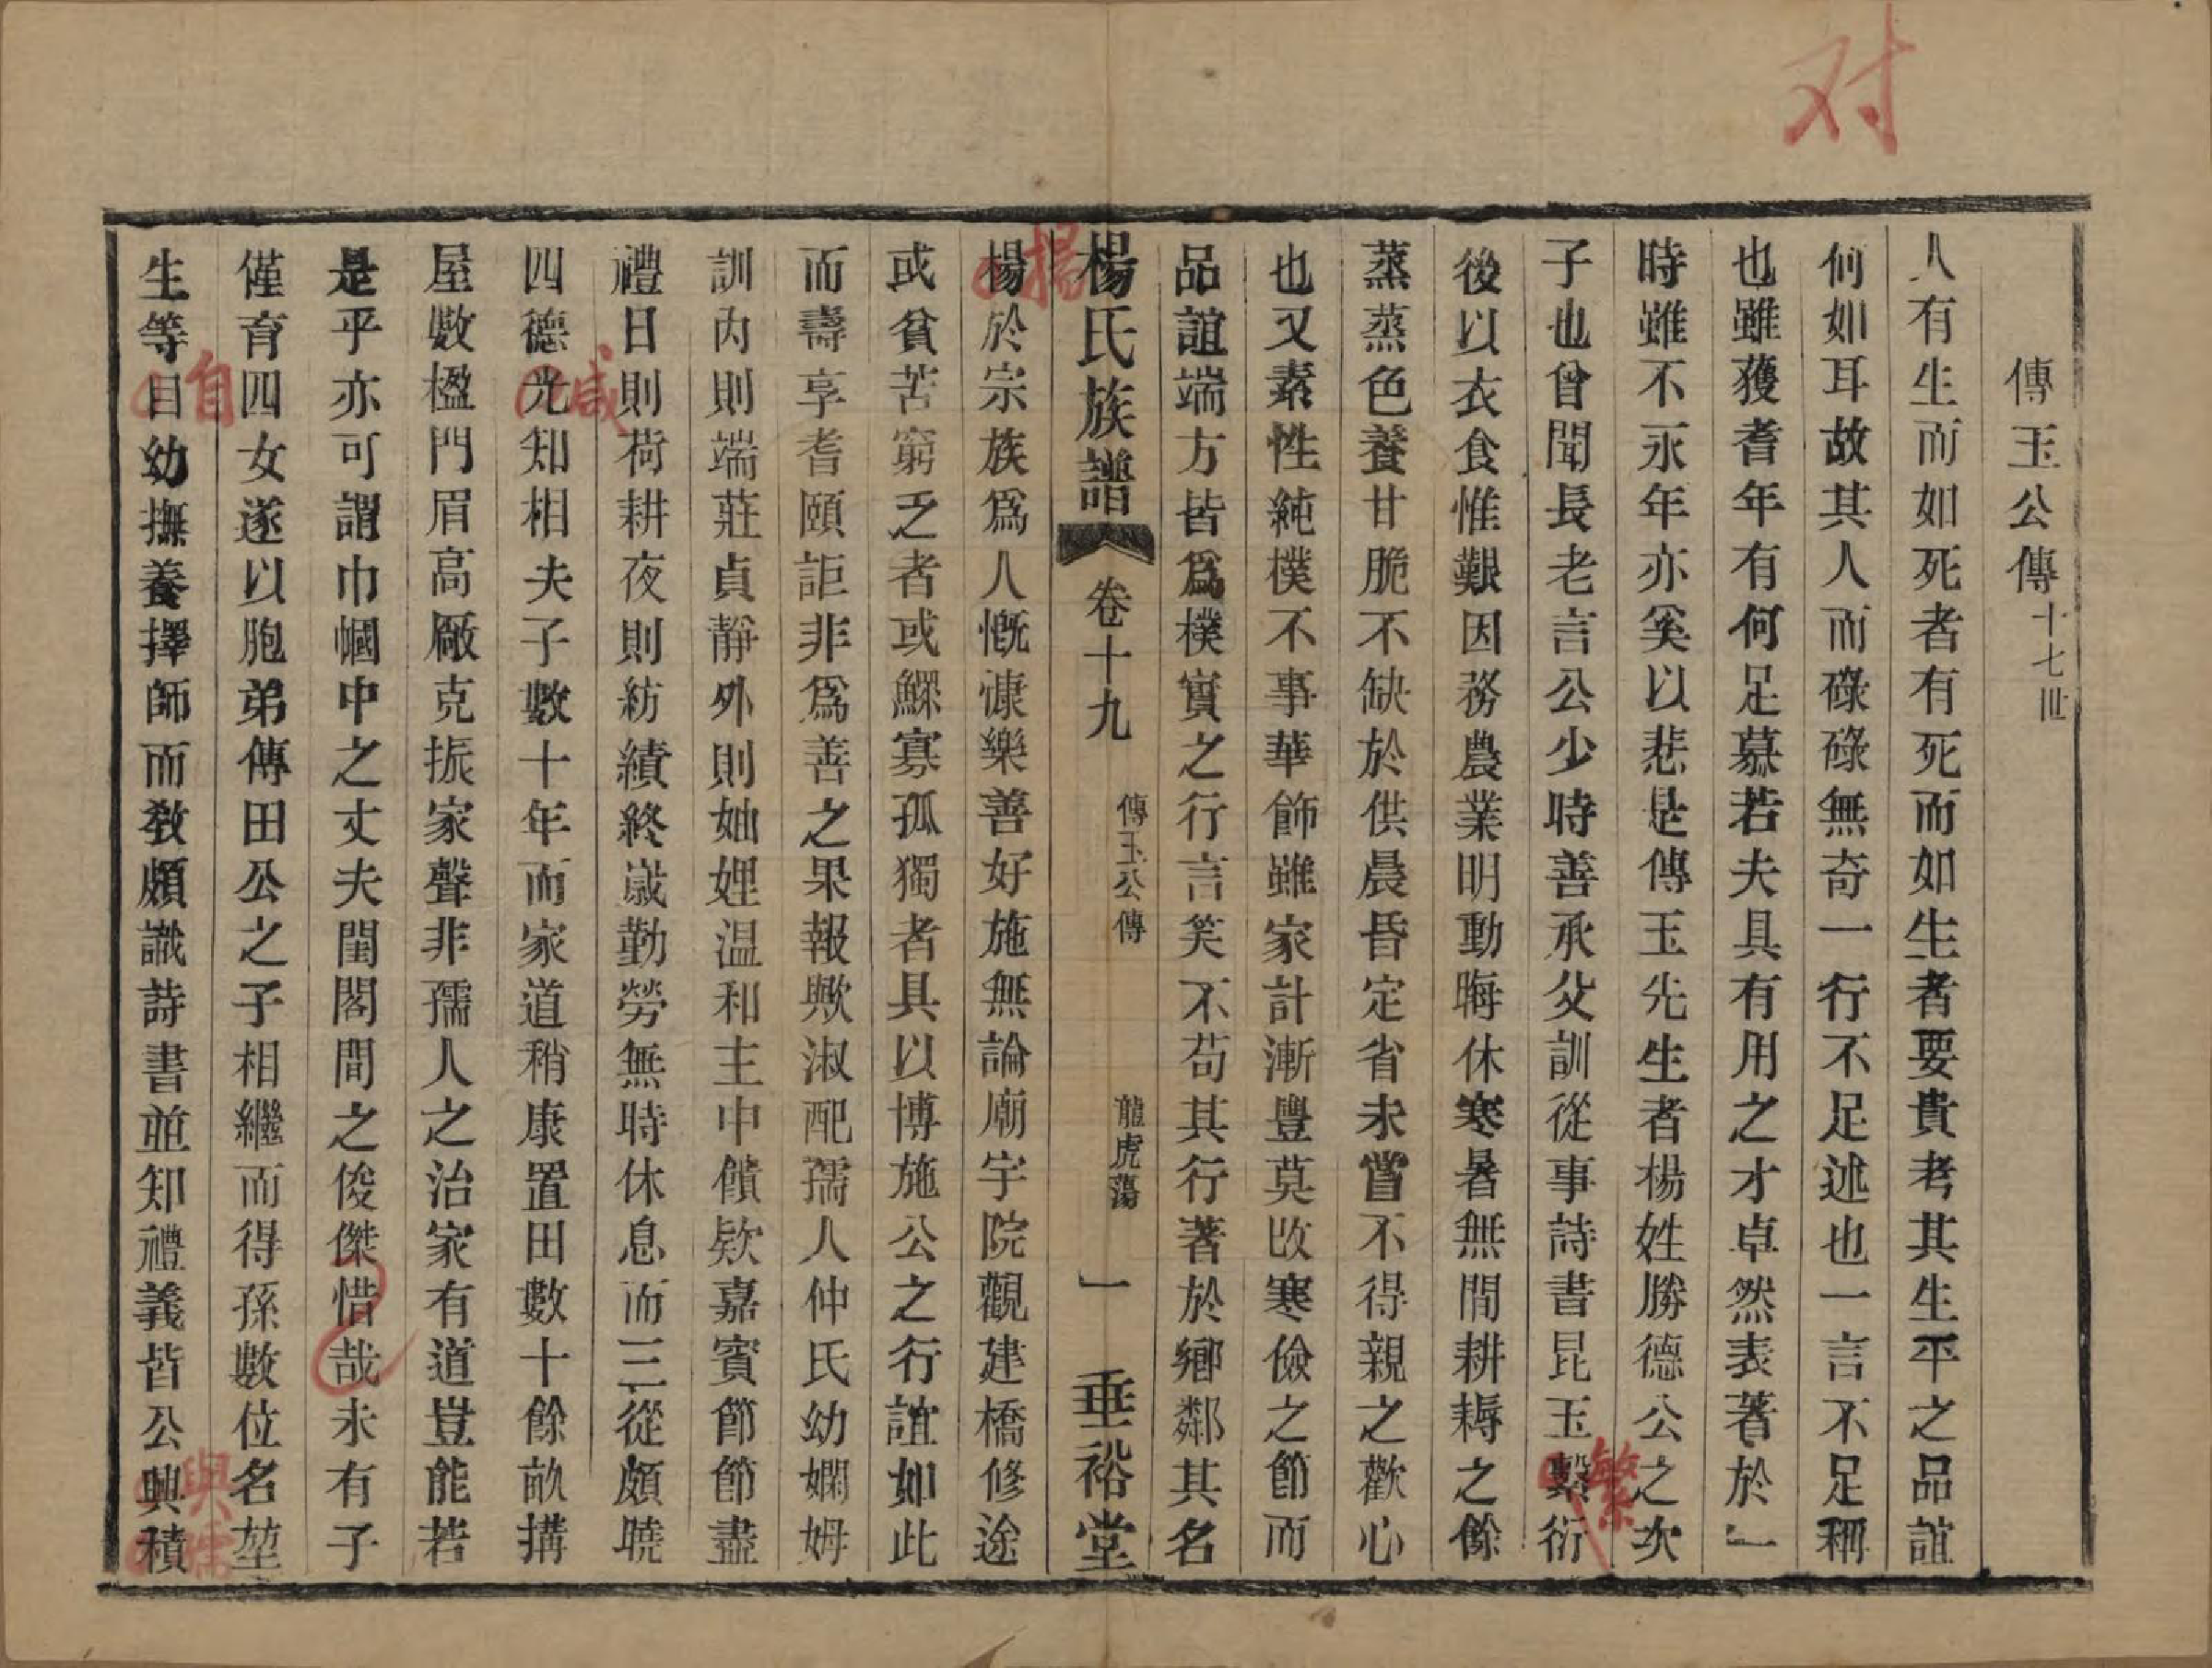 对
傳玉公傳十七世
人有生而如死者有死而如生者要貴考其生平之品誼
何如耳故其人而碌碌無奇一行不足述也一言不足稱
也雖獲耆年有何足慕若夫具有用之才卓然表著於一
時雖不永年亦奚以悲是傳玉先生者楊姓勝德公之次
子也曾聞長老言公少時善承父訓從事詩書昆玉繫衍
繁
後以衣食惟艱因務農業明動晦休寒暑無間耕耨之餘
蒸蒸色養甘脆不缺於供晨昏定省未嘗不得親之歡心
也又素性純樸不事華飾雖家計漸豐莫改寒儉之節而
品誼端方皆爲樸實之行言笑不苟其行著於鄉鄰其名
楊氏族譜 卷十九 傳玉公傳 龍虎蕩 一 垂裕堂
楊於宗族爲人慨慷樂善好施無論廟宇院觀建橋修途
揚
或貧苦窮乏者或鰥寡孤獨者具以博施公之行誼如此
而壽享耆頤詎非爲善之果報歟淑配孺人仲氏幼嫻姆
訓內則端莊貞靜外則妯娌温和主中饋欵嘉賓節節盡
禮日則荷耕夜則紡績終歲勤勞無時休息而三從頗曉
四德光知相夫子數十年而家道稍康置田數十餘畝搆
咸
屋數楹門眉高厰克振家聲非孺人之治家有道豈能若
是乎亦可謂巾幗中之丈夫閨閣間之俊傑惜哉未有子
僅育四女遂以胞弟傳田公之子相繼而得孫數位名堃
生等目幼撫養擇師而敎頗識詩書並知禮義皆公興積
自
與
孺